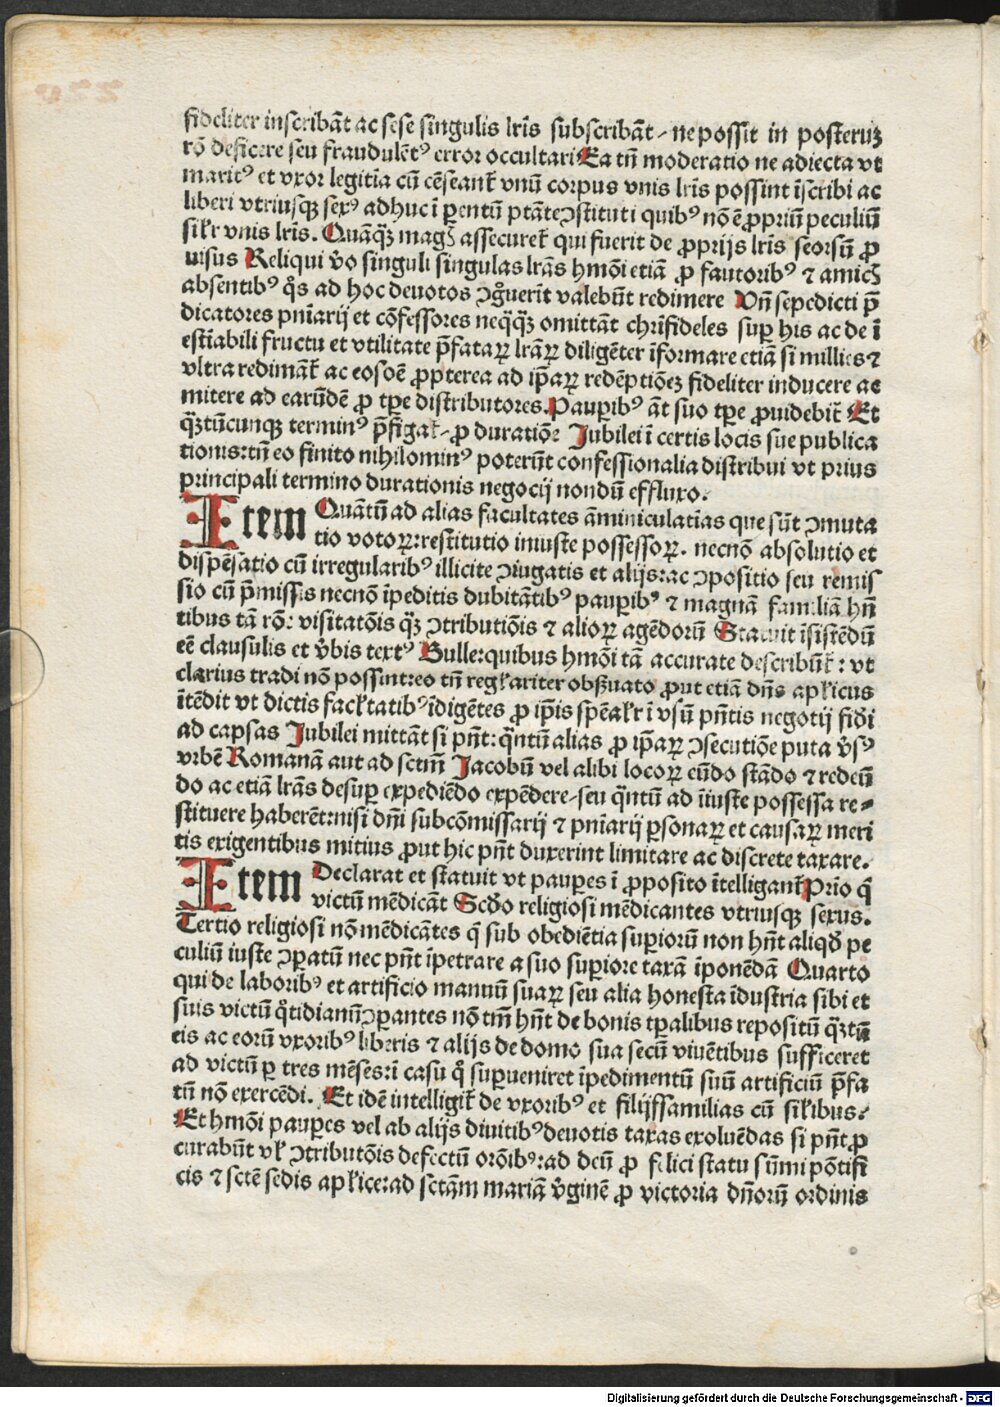 fideliter inscribāt ac sese singulis lr̄is subscribāt / ne possit in posteruꝫ
rō deficere seu fraudulēt⁹ error occultari Ea tn̄ moderatio ne adiecta vt
marit⁹ et vxor legitīa cū cēseant̄ vnū corpus vnis lr̄is possint īscribi ac
liberi vtriusqꝫ sex⁹ adhuc ī parentū ptāte ꝯstituti quib⁹ nō ē ꝓpriū peculiū
sil̄r vnis lr̄is. Quāqꝫ magꝭ assecuret̄ qui fuerit de ꝓprijs lr̄is seorsū ꝓ
uisus Reliqui v̄o singuli singulas lr̄as hm̄ōi etiā ꝓ fautorib⁹ ⁊ amicꝭ
absentib⁹ q̄s ad hoc deuotos ꝯgͦuerīt valebūt redimere Vn̄ sepedicti p̄
dicatores pnīarij et cōfessores neq̄qꝫ omittāt chr̄ifideles suꝑ his ac de ī
estīabili fructu et vtilitate p̄fataꝝ lr̄aꝝ diligēter īformare etiā si millies ⁊
vltra redimāt̄ ac eosoē ꝓpterea ad ip̄aꝝ redēptiōeꝫ fideliter inducere ac
mitere ad earūdē ꝓ tꝑe distributores. Pauꝑib⁹ āt suo tꝑe ꝓuidebit̄ Et
qꝫtūcunqꝫ termin⁹ p̄figat̄ / ꝓ duratiōe Jubilei ī certis locis sue publica
tionis: tn̄ eo finito nihilomin⁹ poterūt confessionalia distribui vt prius
principali termino durationis negocij nondū effluxo.
Item Quātū ad alias facultates āminiculatīas que sūt ꝯmuta
tio votoꝝ: restitutio iniuste possessoꝝ. necnō absolutio et
dispēsatio cū irregularib⁹ illicite ꝯiugatis et alijs: ac ꝯpositio seu remis
sio cū p̄missis necnō īpeditis dubitātib⁹ pauꝑib⁹ ⁊ magnā familiā hn̄
tibus tā rō: visitatōis qꝫ ꝯtributiōis ⁊ alioꝝ agēdorū Statuit īsistēdū
eē clausulis et v̄bis text⁹ Bulle: quibus hm̄ōi tā accurate describūt̄: vt
clarius tradi nō possint: eo tn̄ regl̄ariter obẜuato ꝓut etiā dn̄s apl̄icus
ītēdit vt dictis facl̄tatib⁹ īdigētes ꝓ ip̄is spēal̄r ī vsū pn̄tis negotij fidi
ad capsas Jubilei mittāt si pn̄t: q̄ntū alias ꝓ ip̄aꝝ ꝯsecutiōe puta v̄s⁹
vrbē Romanā aut ad sctm̄ Jacobū vel alibi locoꝝ eūdo stādo ⁊ redeū
do ac etiā lr̄as desuꝑ expediēdo expēdere / seu q̄ntū ad īiuste possessa re⸗
stituere haberēt: nisi dn̄i subcōmissarij ⁊ pnīarij ꝑsonaꝝ et causaꝝ meri
tis exigentibus mitius ꝓut hic pn̄t duxerint limitare ac discrete taxare.
Item Declarat et statuit vt pauꝑes ī ꝓposito ītelligant̄ Prīo q̄
victū mēdicāt Scd̄o religiosi mēdicantes vtriusqꝫ sexus.
Tertio religiosi nō mēdicātes q̄ sub obediētia suꝑiorū non hn̄t aliqd̄ pe
culiū iuste ꝯꝑatū nec pn̄t īpetrare a suo suꝑiore taxā īponēdā Quarto
qui de laborib⁹ et artificio manuū suaꝝ seu alia honesta īdustria sibi et
suis victū q̄tidianū ꝯꝑantes nō tm̄ hn̄t de bonis tꝑalibus repositū qꝫtū
eis ac eorū vxorib⁹ liberis ⁊ alijs de domo sua secū viuētibus sufficeret
ad victū ꝑ tres mēses: ī casu qͦ suꝑueniret īpedimentū suū artificiū p̄fa
tū nō exercēdi. Et idē intelligit̄ de vxorib⁹ et filijffamilias cū sil̄ibus.
Et hm̄ōi pauꝑes vel ab alijs diuitib⁹ deuotis taxas exoluēdas si pn̄t ꝓ
curabūt vl̄ ꝯtributōis defectū orōib⁹: ad deū ꝓ felici statu sūmi pōtifi
cis ⁊ sctē sedis apl̄ice: ad sctām mariā v̄ginē ꝓ victoria dn̄orū ordinis
Digitalisierung gefördert durch die Deutsche Forschungsgemeinschaft - DFG